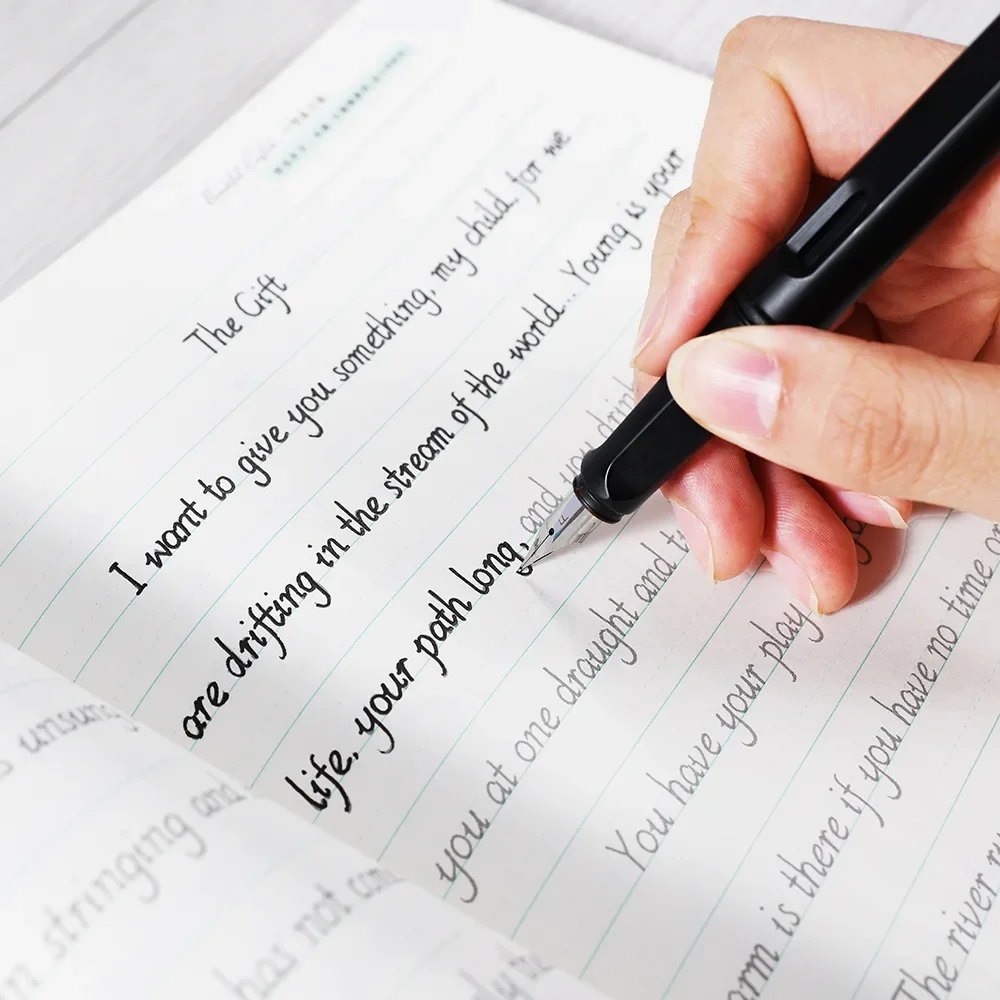 The Gift
I want to give you something, my child, for we
are drifting in the stream of the world... Young is your
life, your path long, and you drink
you at one draught and
You have your play
is there if you have no time
The river
unsung
stringing and
has not